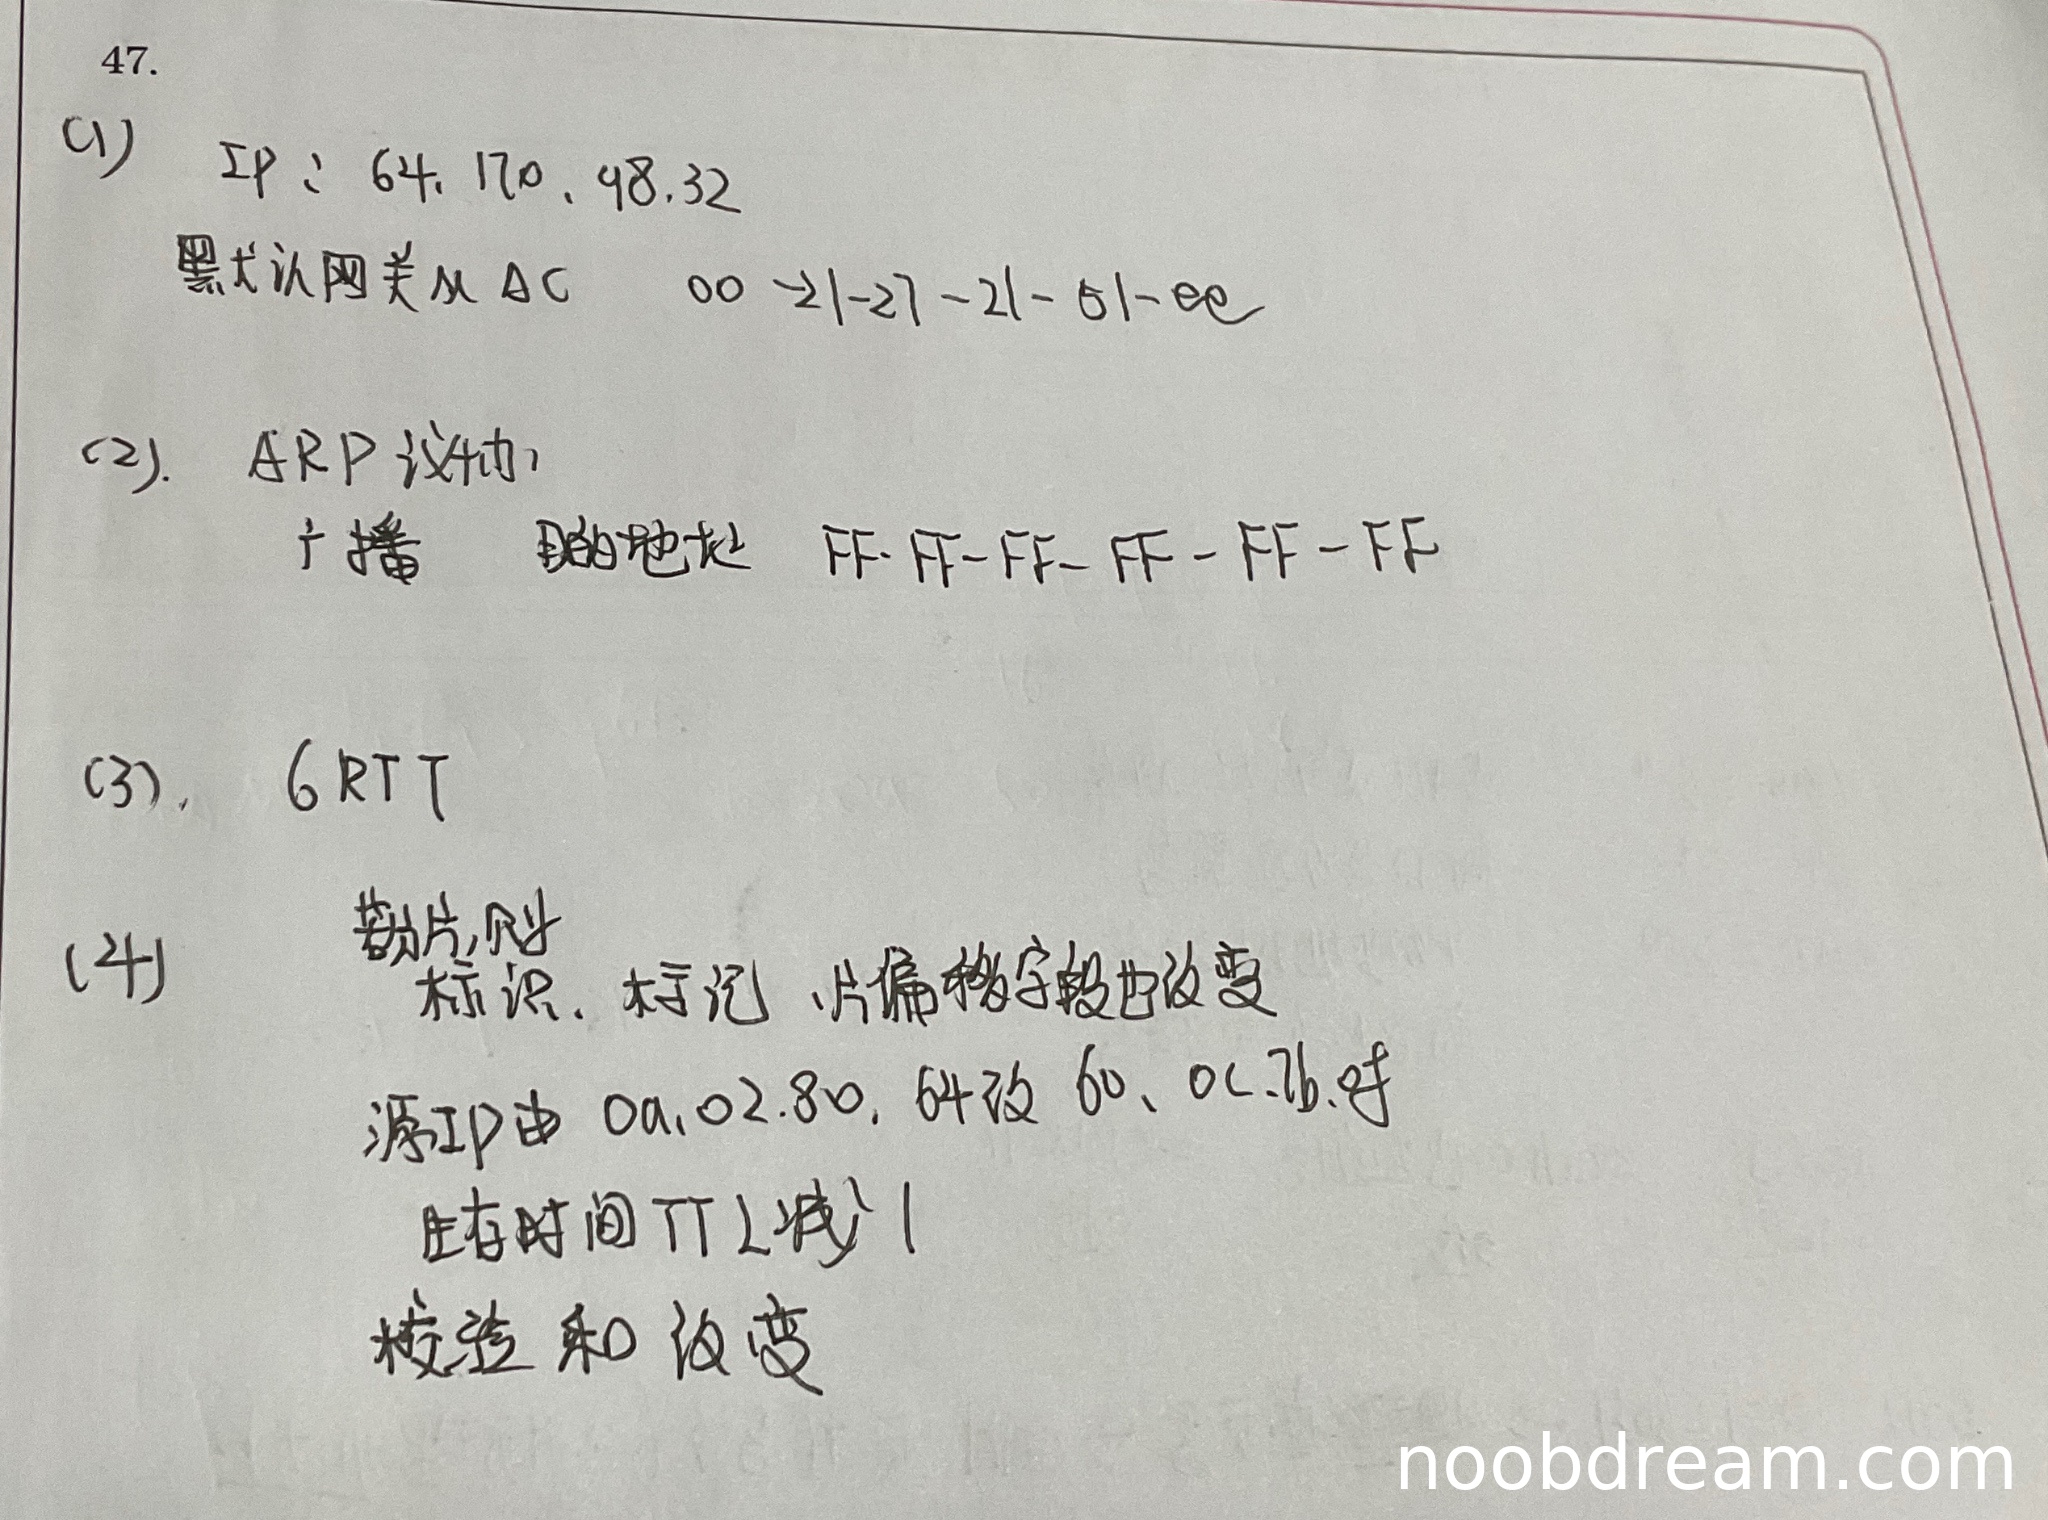 47.
(1)
IP: 64.170.98.32
默认网关MAC 00-21-27-21-51-ee
(2). ARP议协
广播 目的地址 FF-FF-FF-FF-FF-FF
(3). 6RTT
若分片,则
(4) 标识、标记、片偏移字段也改变
源IP由 0a.02.80.64改 60.0c.7b.ef
生存时间TTL减1
校验和改变
noobdream.com